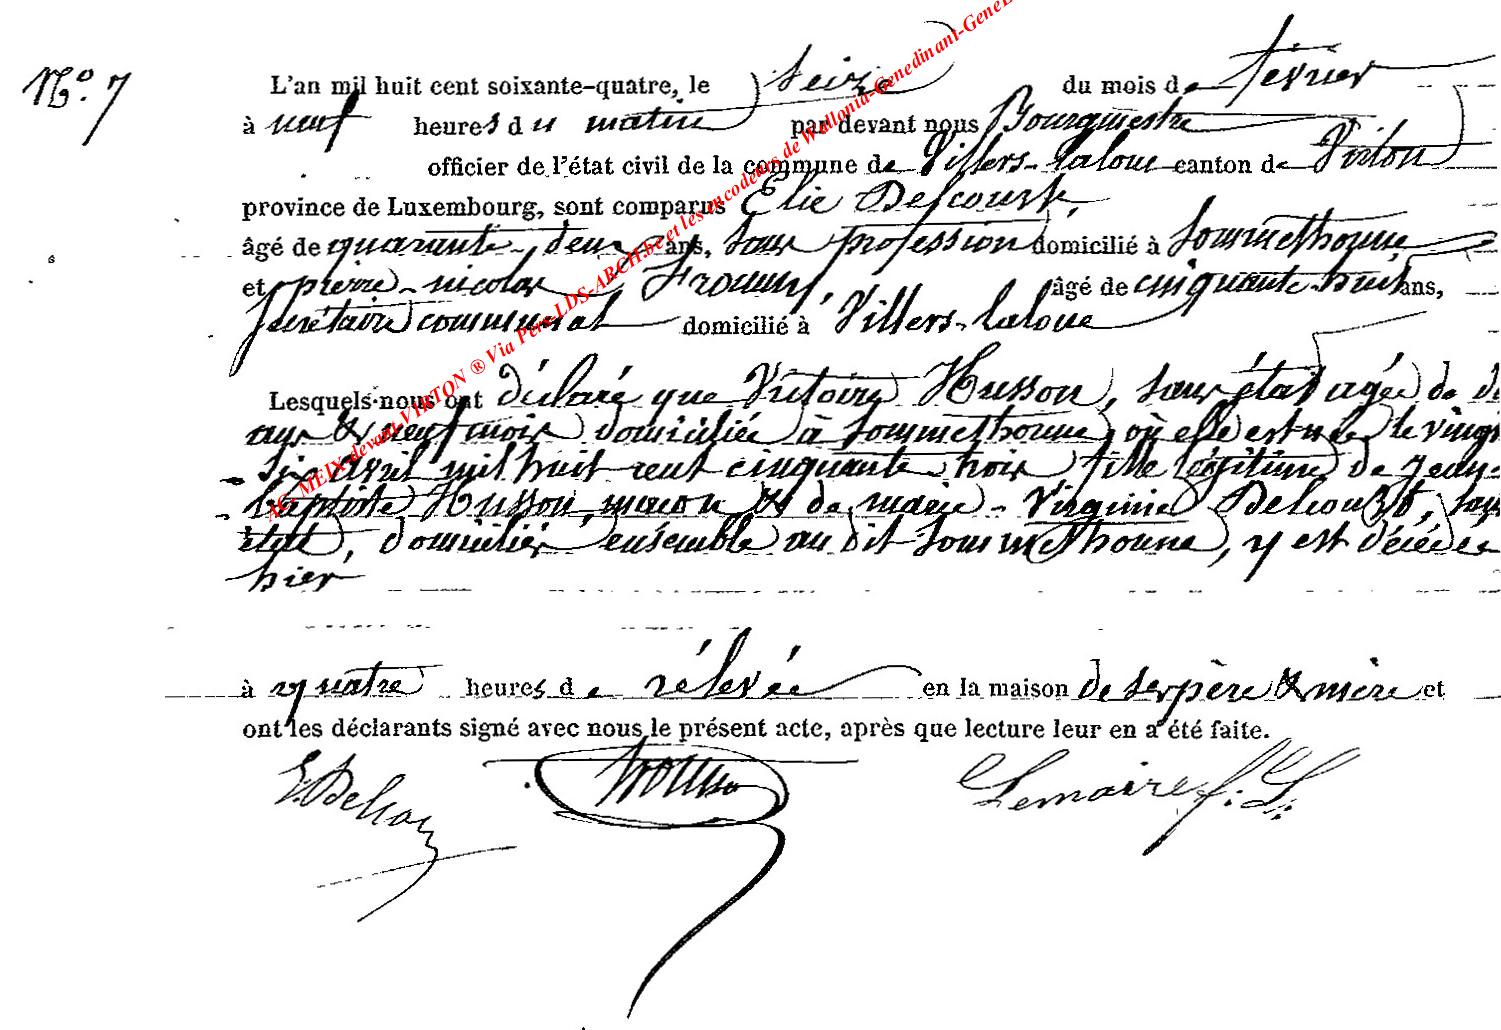 N.º 7
L'an mil huit cent soixante-quatre, le seize du mois de février
à neuf heures du matin par devant nous Bourgmestre
officier de l'état civil de la commune de Villers-laloue canton de Virton
province de Luxembourg, sont comparus Elie Delcourt,
âgé de quarante-deux ans, sans profession domicilié à Sommethonne,
et pierre-nicolas âgé de cinquante-huit ans,
secrétaire communal domicilié à Villers-laloue
Lesquels nous ont déclaré que Victoire Husson, sans état agée de dix
ans & neuf mois domiciliée à Sommethonne, où elle est née le vingt
-six avril mil huit cent cinquante trois fille légitime de Jean-
baptiste Husson, maçon & de marie-Virginie Delcourt, sans
état, domiciliés ensemble au dit Sommethonne, y est décédée
hier
à quatre heures de rélevée en la maison de ses père & mère et
ont les déclarants signé avec nous le présent acte, après que lecture leur en a été faite.
E. Delcour
Lemaire f. L.
AG-MEIX devant-VIRTON ® Via Pers-LDS-ARCH.be et les encodeurs de Wallonia-Genedinant-GeneL